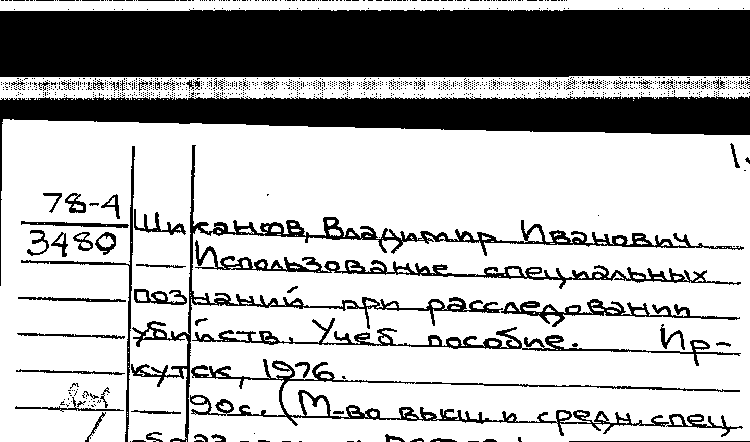 1.
78-4
3480
Шиканов, Владимир Иванович.
Использование специальных
познаний при расследовании
убийств. Учеб. пособие. Ир-
кутск, 1976.
90с. (М-во высш и средн. спец